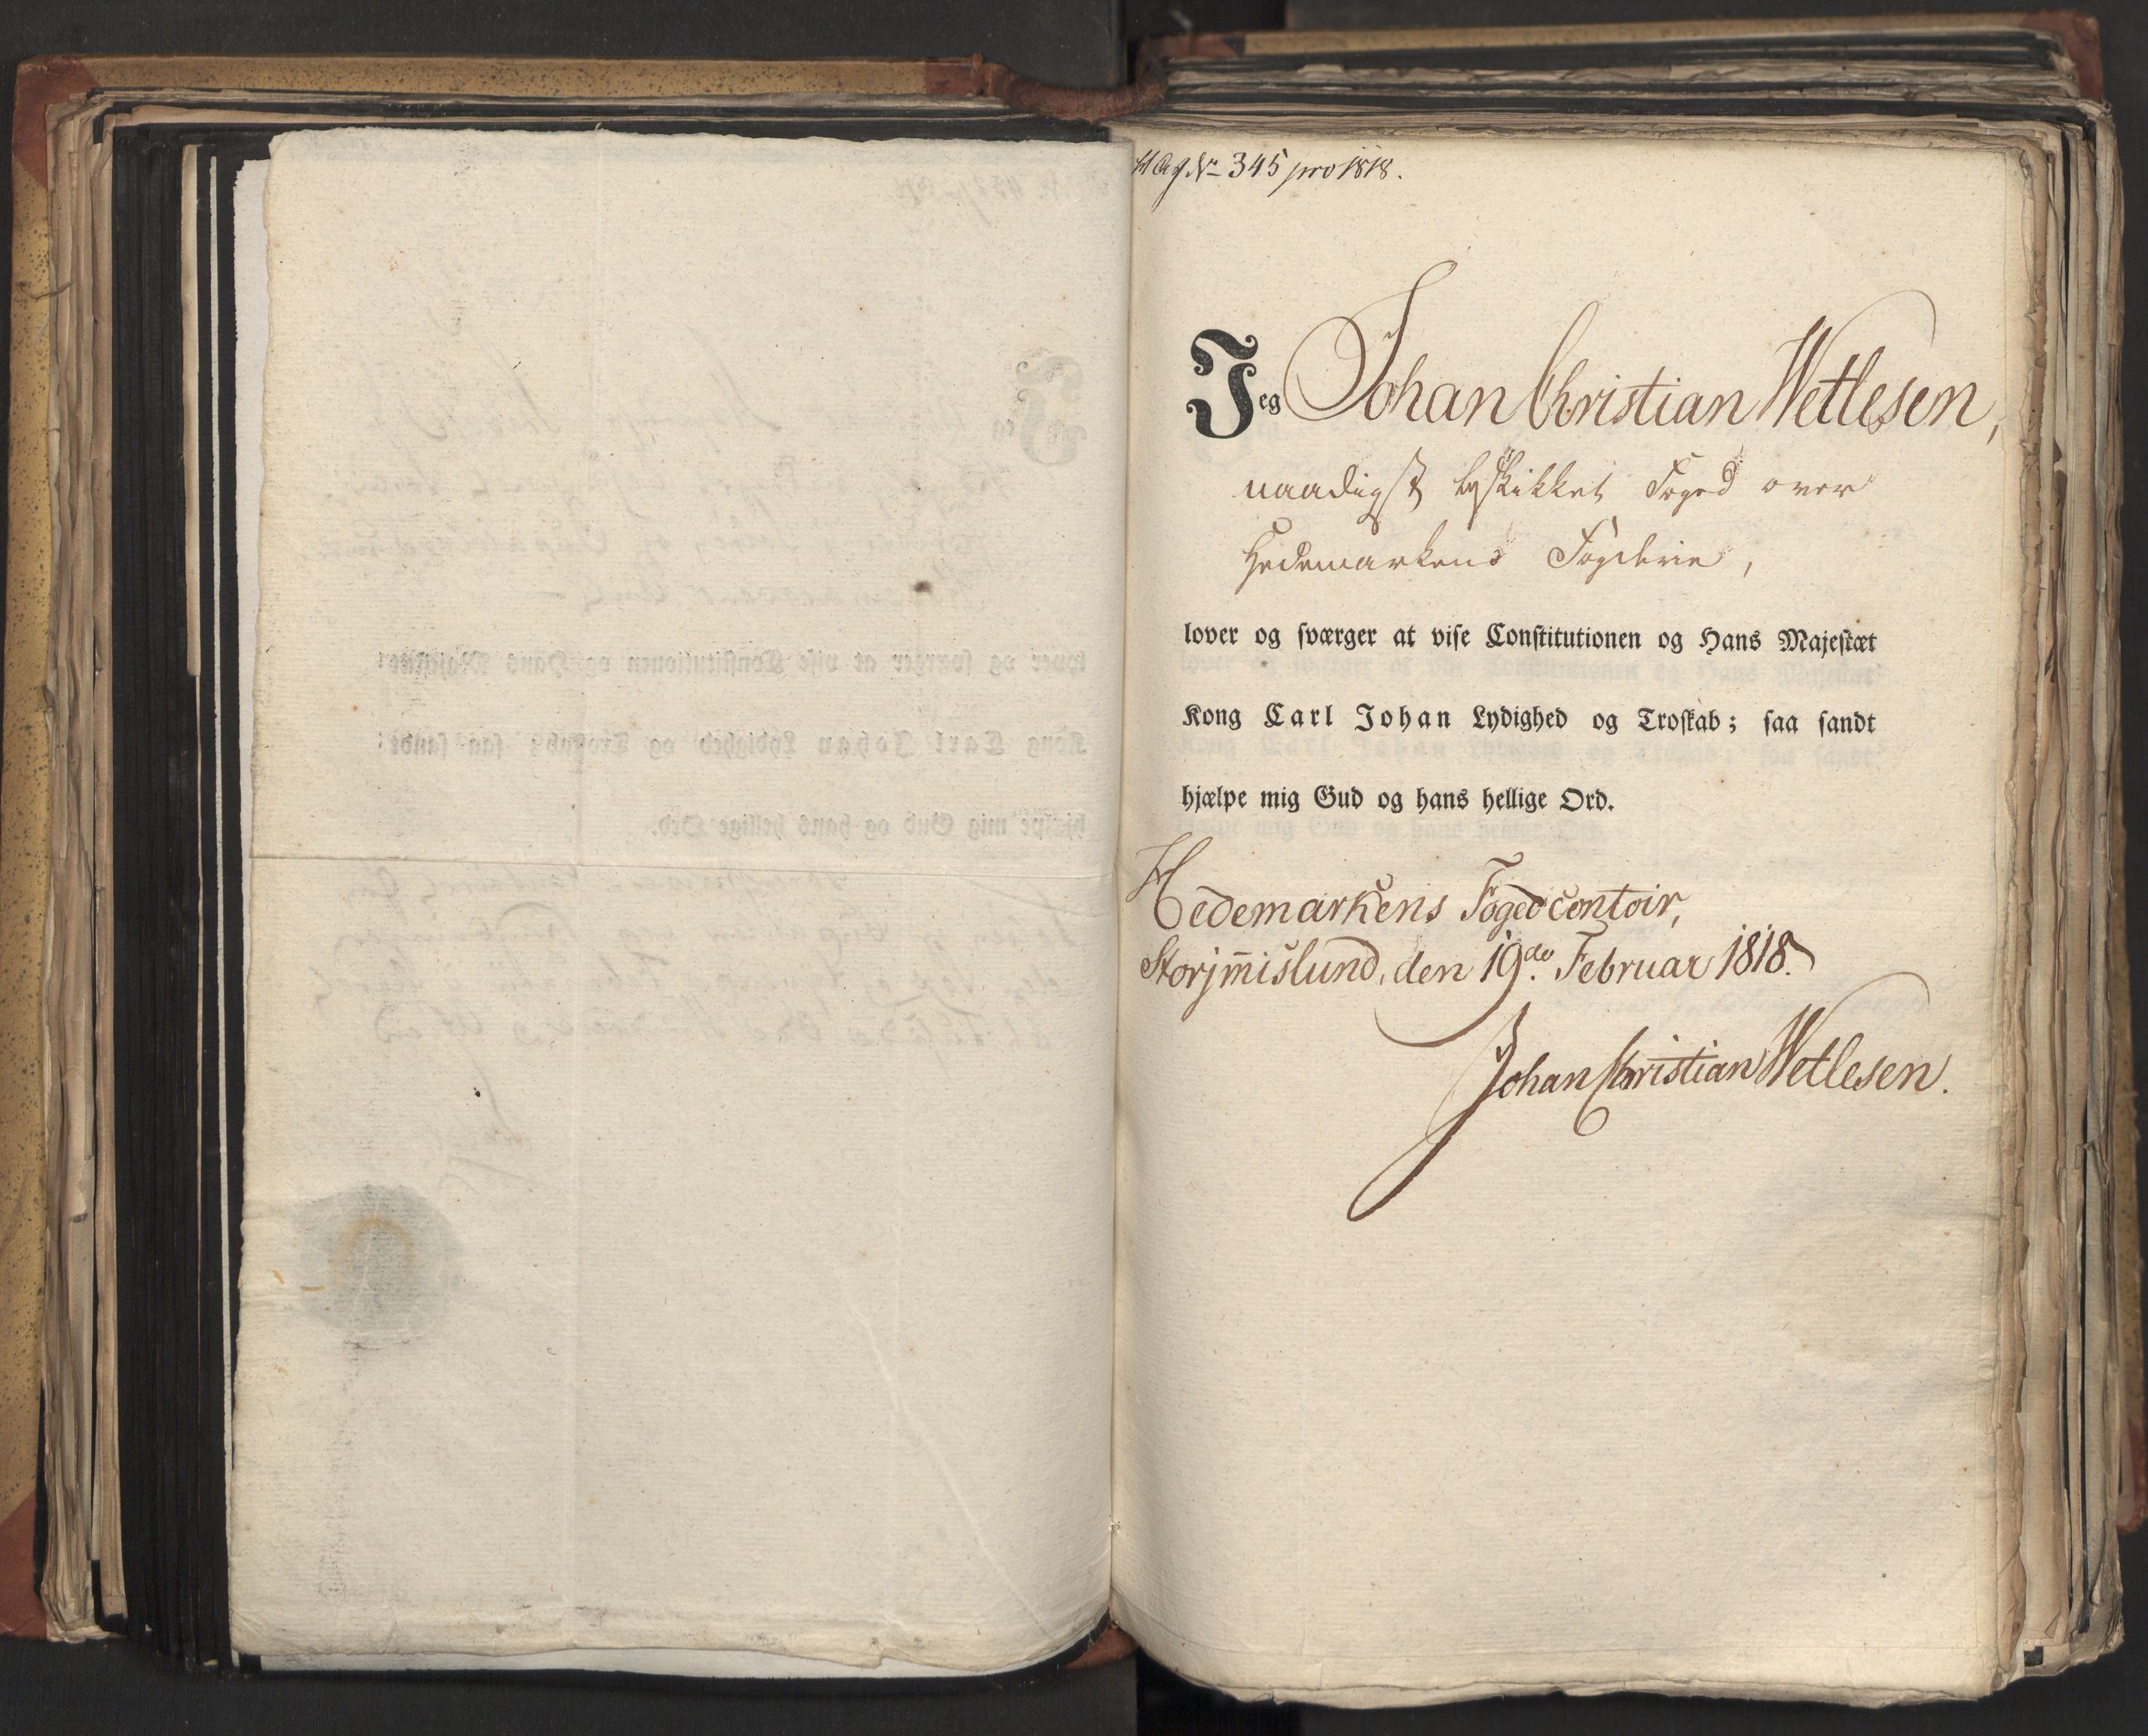 No 345 pro 1818.
Jeg Johan Christian Wetlesen,
naadigst beskikket Foged over
Hedemarkens Fogderie,
lover og sværger at vise Constitutionen og Hans Majestæt
Kong Carl Johan Lydighed og Troskab; saa sandt
hjælpe mig Gud og hans hellige Ord.
Hedemarkens Fogedcontoir,
Storjm̅islund, den 19de Februar 1818.
Johan Christian Wetlesen.